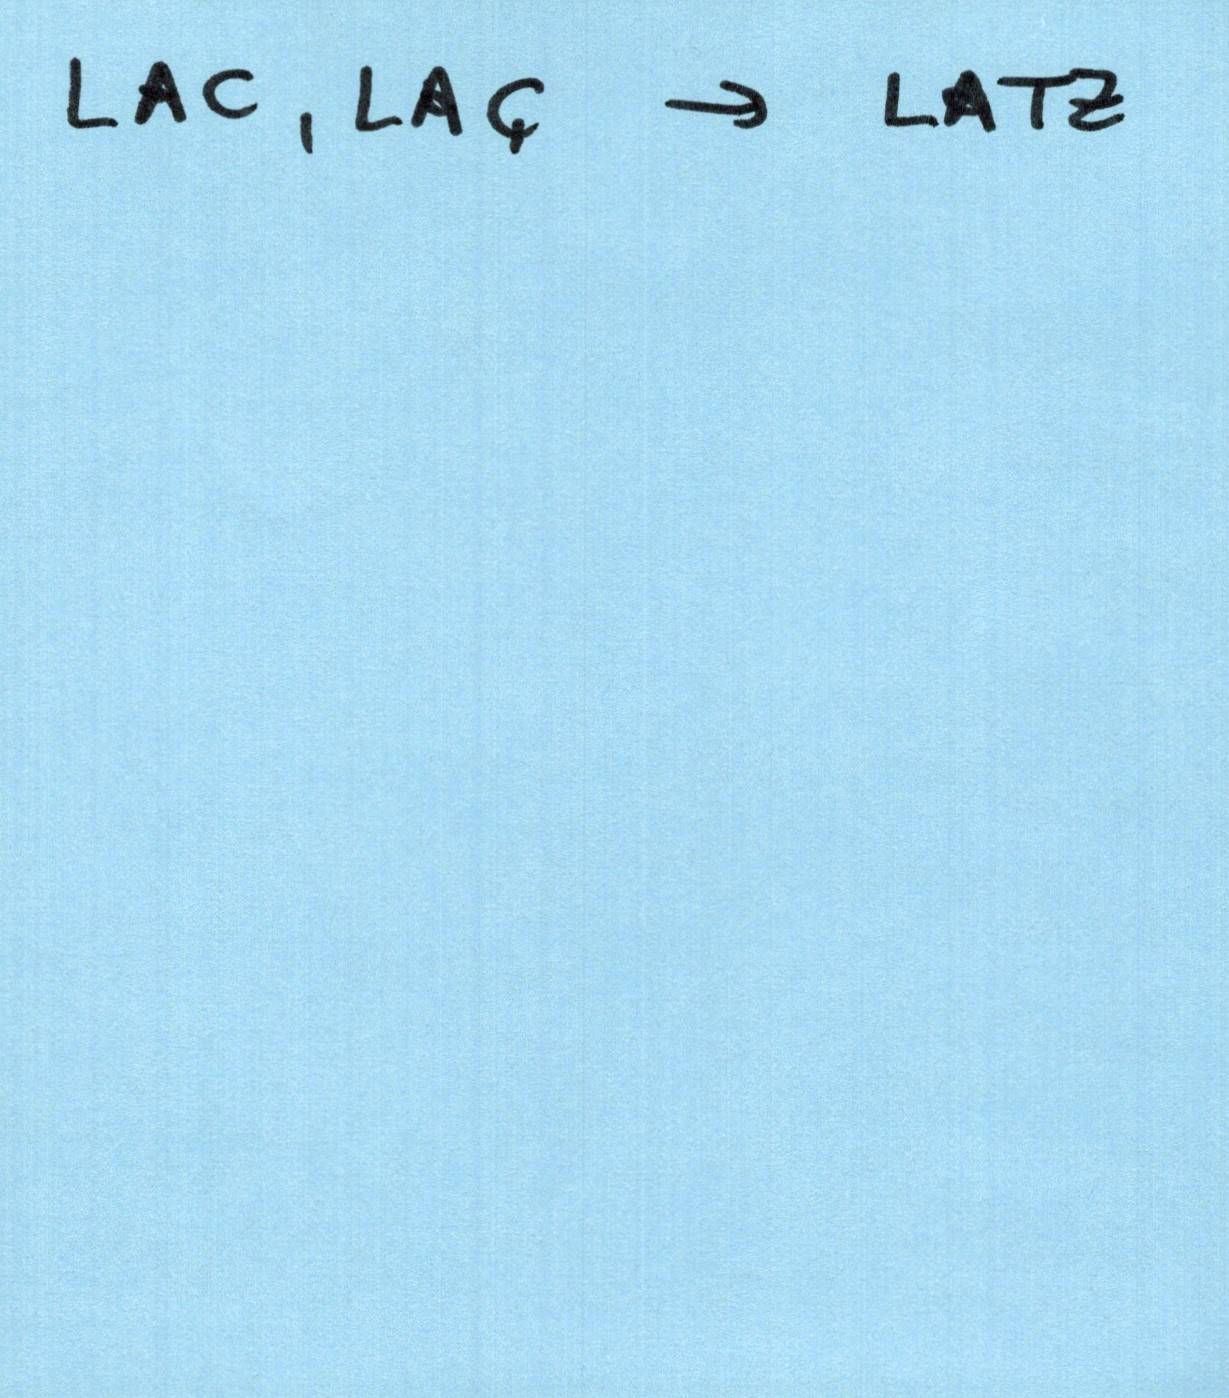 LAC, LAÇ → LATZ